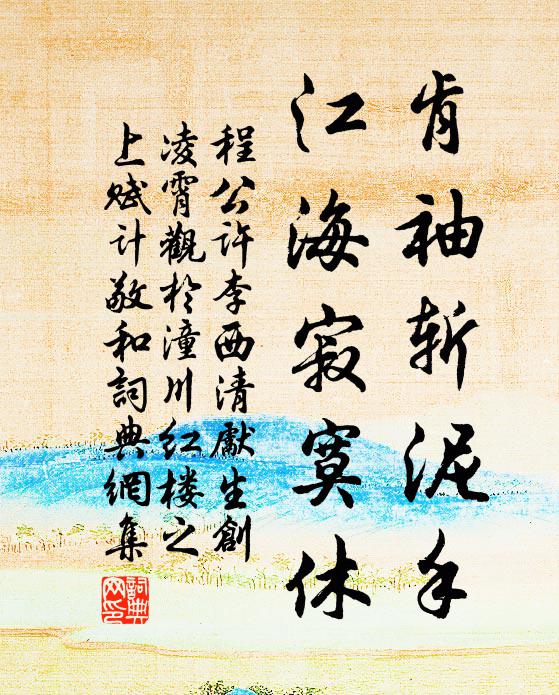 肯袖斩泥手
江海寂寞休
程公许李西清献生創
凌霄觀於潼川红楼之
上赋计敬和詞典網集
詞典网印